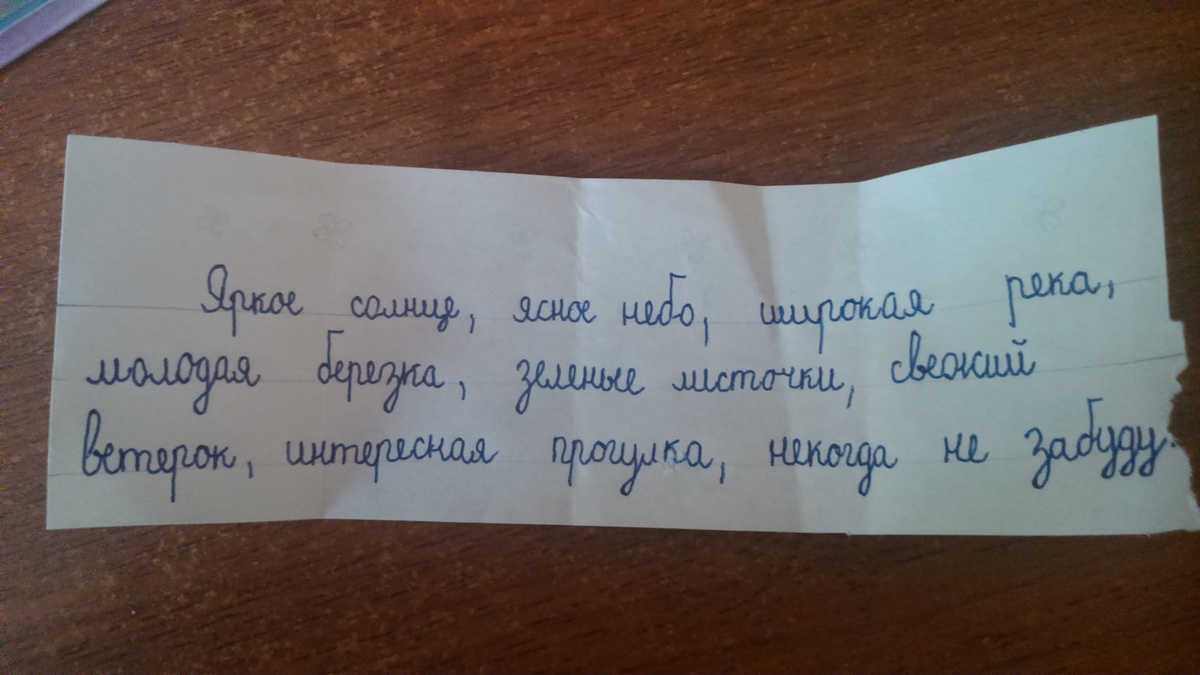 Яркое солнце, ясное небо, широкая река,
молодая березка, зеленые листочки, свежий
ветерок, интересная прогулка, некогда не забуду.